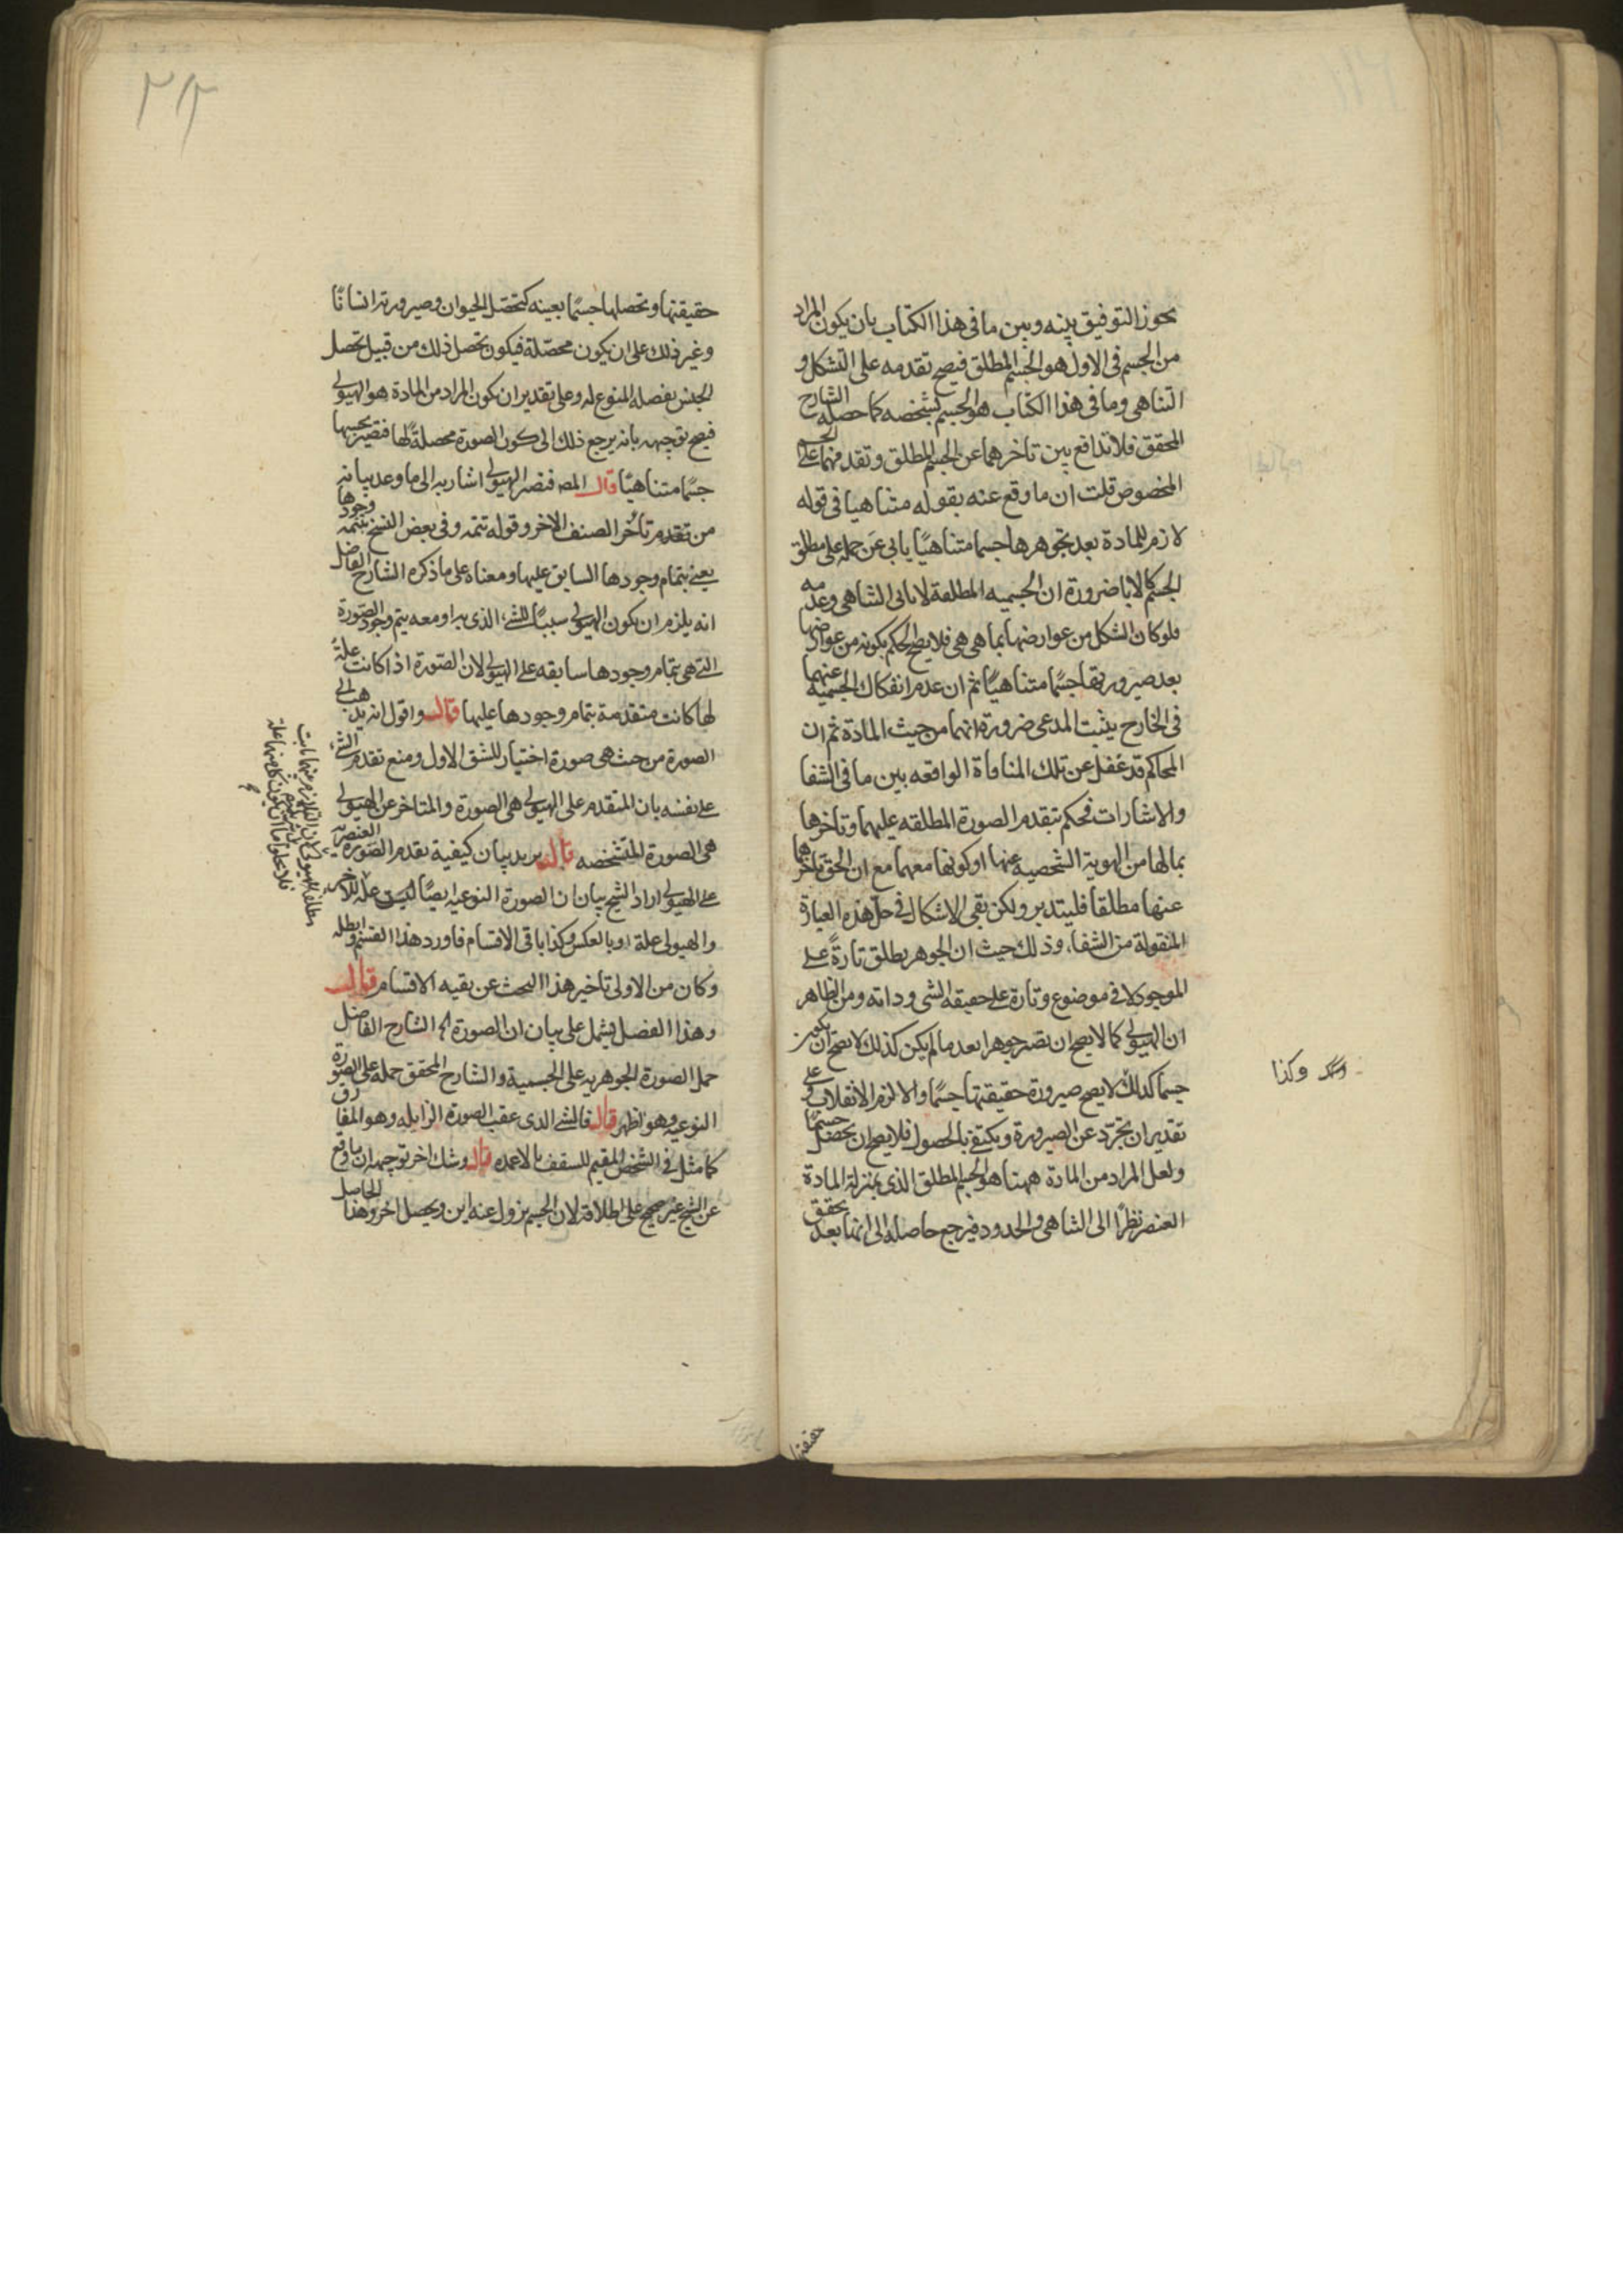 يجوز التوفيق بينه وبين ما فى هذا الكتاب بان يكون المراد
من الجسم فى الاول هو الجسم المطلق فيصح تقدمه على التشكل و
التناهى وما فى هذا الكتاب هو الجسم بشخصه كما حصله الشارح
المحقق فلا تدافع بين تاخرهما عن الجسم المطلق وتقدمهما على الجسم
المخصوص قلت ان ما وقع عنه بقوله متناهيا فى قوله
لازم للمادة بعد تجوهرها جسما متناهيًا يابى عن حمله على مطلق
الجسم كما لا يابى ضرورة ان الجسميه المطلقة لا يابى التناهى وعدمه
فلو كان الشكل من عوارضها بما هى هى فلا يصح الحكم بكونه من عوارضها
بعد صيرورتها جسمًا متناهيًا ثم ان عدم انفكاك الجسميه عنهما
فى الخارج يثبت المدعى ضرورة انهما من حيث المادة ثم ان
المحاكم قد غفل عن تلك المنافاة الواقعه بين ما فى الشفا
والاشارات فحكم بتقدم الصورة المطلقه عليهما وتاخرها
بما لها من الهوية الشخصيه عنها او كونها معهما مع ان الحق تاخرهما
عنها مطلقا فليتدبر ولكن بقى الاشكال فى حل هذه العبارة
المنقولة من الشفاء وذلك حيث ان الجوهر يطلق تارةً على
الموجود لا فى موضوع وتارة على حقيقه الشى وذاته ومن الظاهر
ان الهيولى كما لا يصح ان تصير جوهرا بعد ما لم يكن كذلك لا يصح ان يكون
جسما كذلك لا يصح صيرورة حقيقتها جسمًا والا لزم الانقلاب وعلى
تقدير ان يجرّد عن الصيرورة ويكتفى بالحصول فلا يصح ان يحصل جسمًا
ولعل المراد من المادة ههنا هو الجسم المطلق الذى بمنزلة المادة
العنصر نظرًا الى التناهى والحدود فيرجع حاصله الى انها بعد تحقق
وكذا
حقيقتها
حقيقتها وتحصلها جسمًا بعينه كتحصّل الحيوان وصيرورته انسانًا
وغير ذلك على ان يكون محصّلة فيكون تحصل ذلك من قبيل تحصل
الجنس بفصله المنوع له وعلى تقدير ان يكون المراد من المادة هو الهيولى
فيصح توجيهه بانه يرجع ذلك الى كون الصورة محصلةً لها فتصير بحسبها
جسمًا متناهيًا قال المص فتصير الهيولى اشار به الى ما وعد بيانه
من تقدم تأخر الصنف الاخر وقوله تتمه وفى بعض النسخ بتتمه وجودها
يعنى بتمام وجودها السابق عليها ومعناه على ما ذكره الشارح الفاضل
انه يلزم ان يكون الهيولى سببًا للشئ الذى به او معه يتم وجود الصورة
التى هى بتمام وجودها سابقه على الهيولى لان الصورة اذا كانت علة
لها كانت متقدمة بتمام وجودها عليها قال واقول انه يذهب الى
الصورة من حيث هى صورة اختيار للشق الاول ومنع تقدم الشئ
على نفسه بان المتقدم على الهيولى هى الصورة والمتاخر عن الهيولى
هى الصورة المتشخصه قال يريد بيان كيفية تقدم الصورة العنصريه
على الهيولى اراد الشيخ بيان ان الصورة النوعيه ايضًا ليست علة للاخر
والهيولى علة او بالعكس وكذا باقى الاقسام فاورد هذا القسم وابطله
وكان من الاولى تاخير هذا البحث عن بقيه الاقسام قال
وهذا الفصل يشمل على بيان ان الصورة الخ الشارح الفاضل
حمل الصورة الجوهريه على الجسمية والشارح المحقق حمله على الصورة
النوعيه وهو اظهر قال فالشئ الذى عقب الصورة الزايله وهو المفارق
كما مثل فى الشخص المقيم للسقف بالاعمده قال وشك اخر توجيهه ان ما وقع
عن الشيخ غير صحيح على اطلاقه لان الجسم يزول عنه اين ويحصل اخر وهذا الحاصل